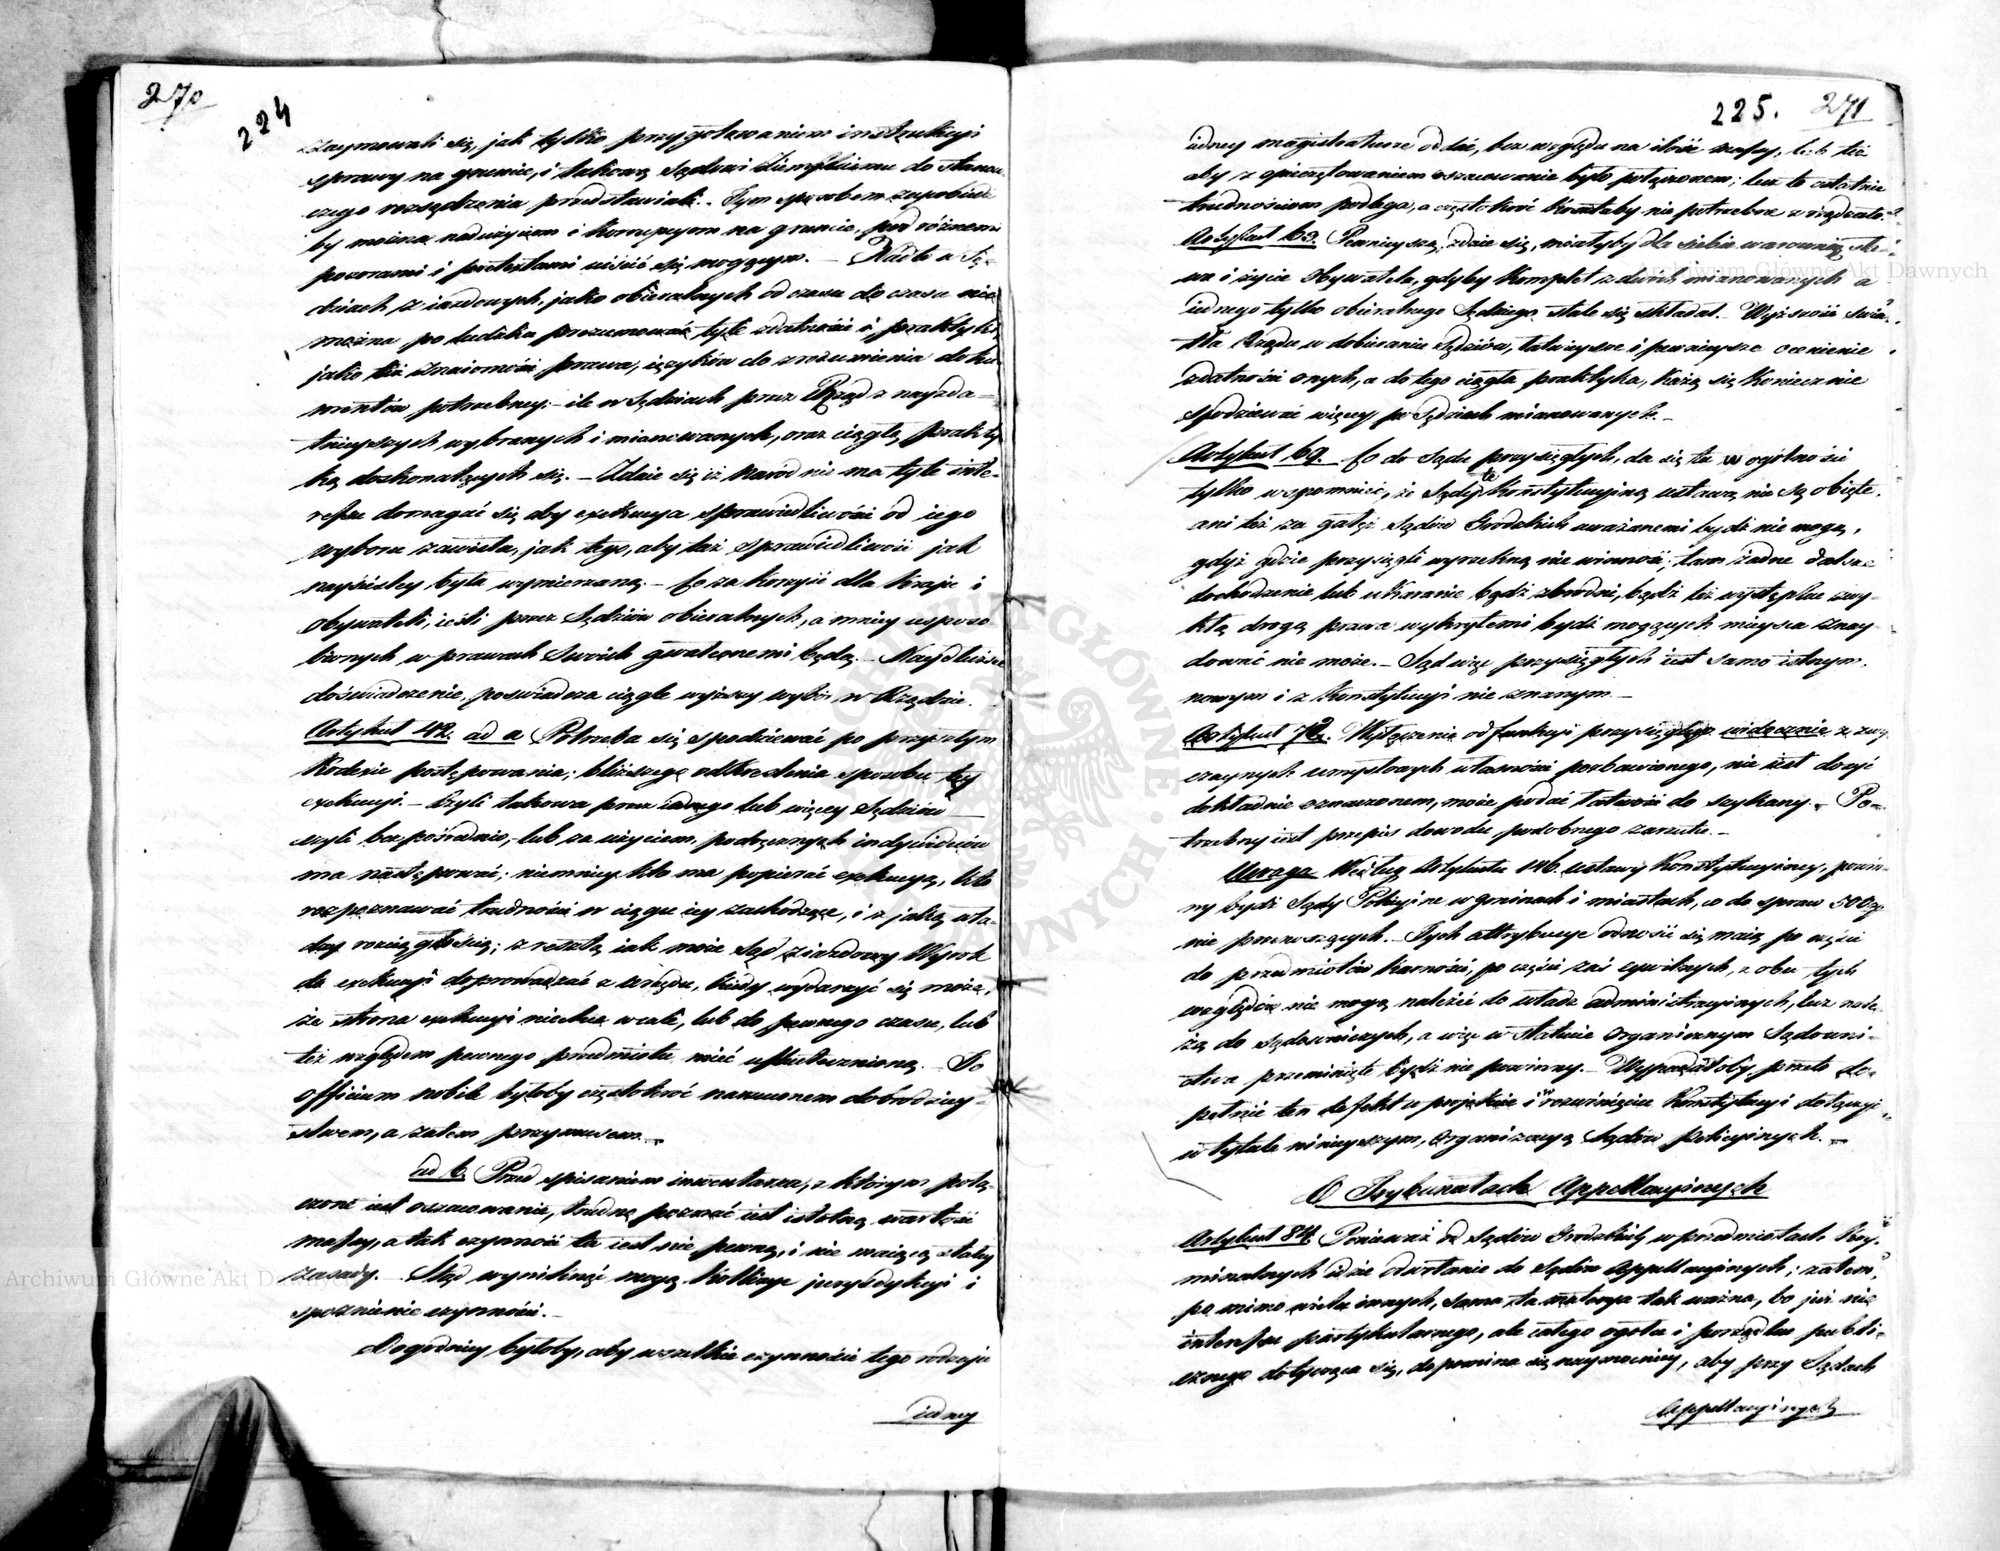 270
224
trzymowali się, jak tylko przygotowaniem instrukcyi
sprawy na gruncie, i takową Sądowi Ziemskiemu do stanow-
czego rozsądzenia przedstawiali. Tym sposobem zapobiedz
by można nadużyciom i korrupcyom na gruncie, pod różnemi
pozorami i pretextami uiścić się mogącym. — Nadto w Sę-
dziach ziazdowych, jako obieralnych od czasu do czasu nie
można po ludzku prezumować tyle zdatności i praktyki,
jako też znaiomości prawa, ięzyków do zrozumienia doku-
mentów potrzebney; ile w Sędziach przez Rząd z nayzda-
tnieyszych wybranych i mianowanych, oraz ciągłą prakty-
ką doskonalących się. — Zdaie się iż Naród nie ma tyle inte-
resu domagać się aby exekucya sprawiedliwości od iego
wyboru zawisła, jak tego, aby też sprawiedliwość jak
nayściśley była wymierzaną. — Co za korzyść dla kraju i
obywateli, ieśli przez Sędziów obieralnych, a mniey usposo-
bionych w prawach swoich gwałconemi będą. — Naydłuższe
doświadczenie, poświadcza ciągle wyższy wybór w Urzędzie.
Artykuł 42. ad a Potrzeba się spodziewać po przyszłym
Kodexie postępowania, bliższego określenia sposobu tey
exekucyi. — Czyli takowa przez iednego lub więcey Sędziów
czyli bezpośrednio, lub za użyciem podręcznych indywiduów
ma następować; niemniey kto ma popierać exekucyą, kto
rozpoznawać trudności w ciągu iey zachodzące, i z jaką wła-
dzy rozciągłością; zresztą jak może Sąd ziazdowy Wyrok
do exekucyi doprowadzać z urzędu, kiedy wydarzyć się może,
że strona exekucyi niechce wcale, lub do pewnego czasu, lub
też względem pewnego przedmiotu mieć uskutecznioną. To
officium nobile byłoby częstokroć narzuconem dobrodziey-
stwem, a zatem przymusem.
ad b. Przed spisaniem inwentarza, z którym połą-
czone iest oszacowanie, trudno poznać iest istotną wartość
massy, a tak czynność ta iest nie pewną, i nie maiącą stałey
zasady. Stąd wyniknąć mogą kollizye jurysdykcyi i
spoznienie czynności. —
Dogodniey byłoby, aby wszelkie czynności tego rodzaju
iedney
225. 271
iedney magistraturze oddać, bez względu na ilość massy, lub też
aby z opieczętowaniem oszacowanie było połączonem; lecz to ostatnie
trudnościom podlega, a częstokroć koszta by nie potrzebne z rządzało.
Artykuł 63. Pewnieyszą, zdaie się, miałyby dla siebie warownią sła-
wa i życie Obywatela, gdyby komplet z dwóch mianowanych a
iednego tylko obieralnego Sędziego stale się składał. — Wyższość świa-
tła Rządu w dobieraniu Sędziów, łatwieysze i pewnieysze ocenienie
zdatności onych, a do tego ciągła praktyka, każą się koniecznie
spodziewać więcey po Sędziach mianowanych. —
Artykuł 69. Co do Sądu przysięgłych, da się tu w ogólności
tylko wspomnieć, że Sądy te Konstytucyiną ustawą nie są obięte,
ani też za gałęź Sądów Grodzkich uważanemi bydź nie mogą,
gdyż gdzie przysięgli wyrzekną nie winność, tam żadne dalsze
dochodzenie lub ukaranie bądź zbrodni, bądź też występku zwy-
kłą drogą prawa wykrytemi bydź mogących mieysca znay-
dować nie może. — Sąd więc przysięgłych iest samo istnym,
nowym i z Konstytucyi nie znanym. —
Artykuł 72. Wyłączenie od funkcyi przysięgłego widocznie z zwy-
czaynych umysłowych własności pozbawionego, nie iest dosyć
dokładnie oznaczonem, może podać łatwość do szykany. — Po-
trzebny iest przepis dowodu podobnego zarzutu. —
Uwaga Według Artykułu 146. ustawy Konstytucyiney, powin-
ny bydź Sądy Policyine w gminach i miastach, w do spraw 500 Złp
nie przenoszących. — Tych attrybucye odnosić się maią po części
do przedmiotów karności, po części zaś cywilnych, z obu tych
względów nie mogą należeć do władz administracyinych, lecz nale-
żą do sądowniczych, a więc w statucie organicznym Sądowni-
ctwa przeminięte bydź nie powinny. — Wypadałoby przeto do-
pełnić ten defekt w projekcie i w rozwinięciu Konstytucyi dołączyć
w tytule ninieyszym, organizacyą Sądów policyinych. —
O Trybunałach Appellacyinych
Artykuł 84. Ponieważ od Sądów Grodzkich w przedmiotach Kry-
minalnych idzie odwołanie do Sądów Appellacyinych; zatem,
po mimo wielu innych, sama ta materya tak ważna, bo już nie
interessu partykularnego, ale całego ogółu i porządku publi-
cznego dotycząca się, dopomina się naymocniey, aby przy Sądach
Appellacyinych
Archiwum Główne Akt Dawnych
Archiwum Główne Akt Dawnych
ARCHIWUM GŁÓWNE AKT DAWNYCH